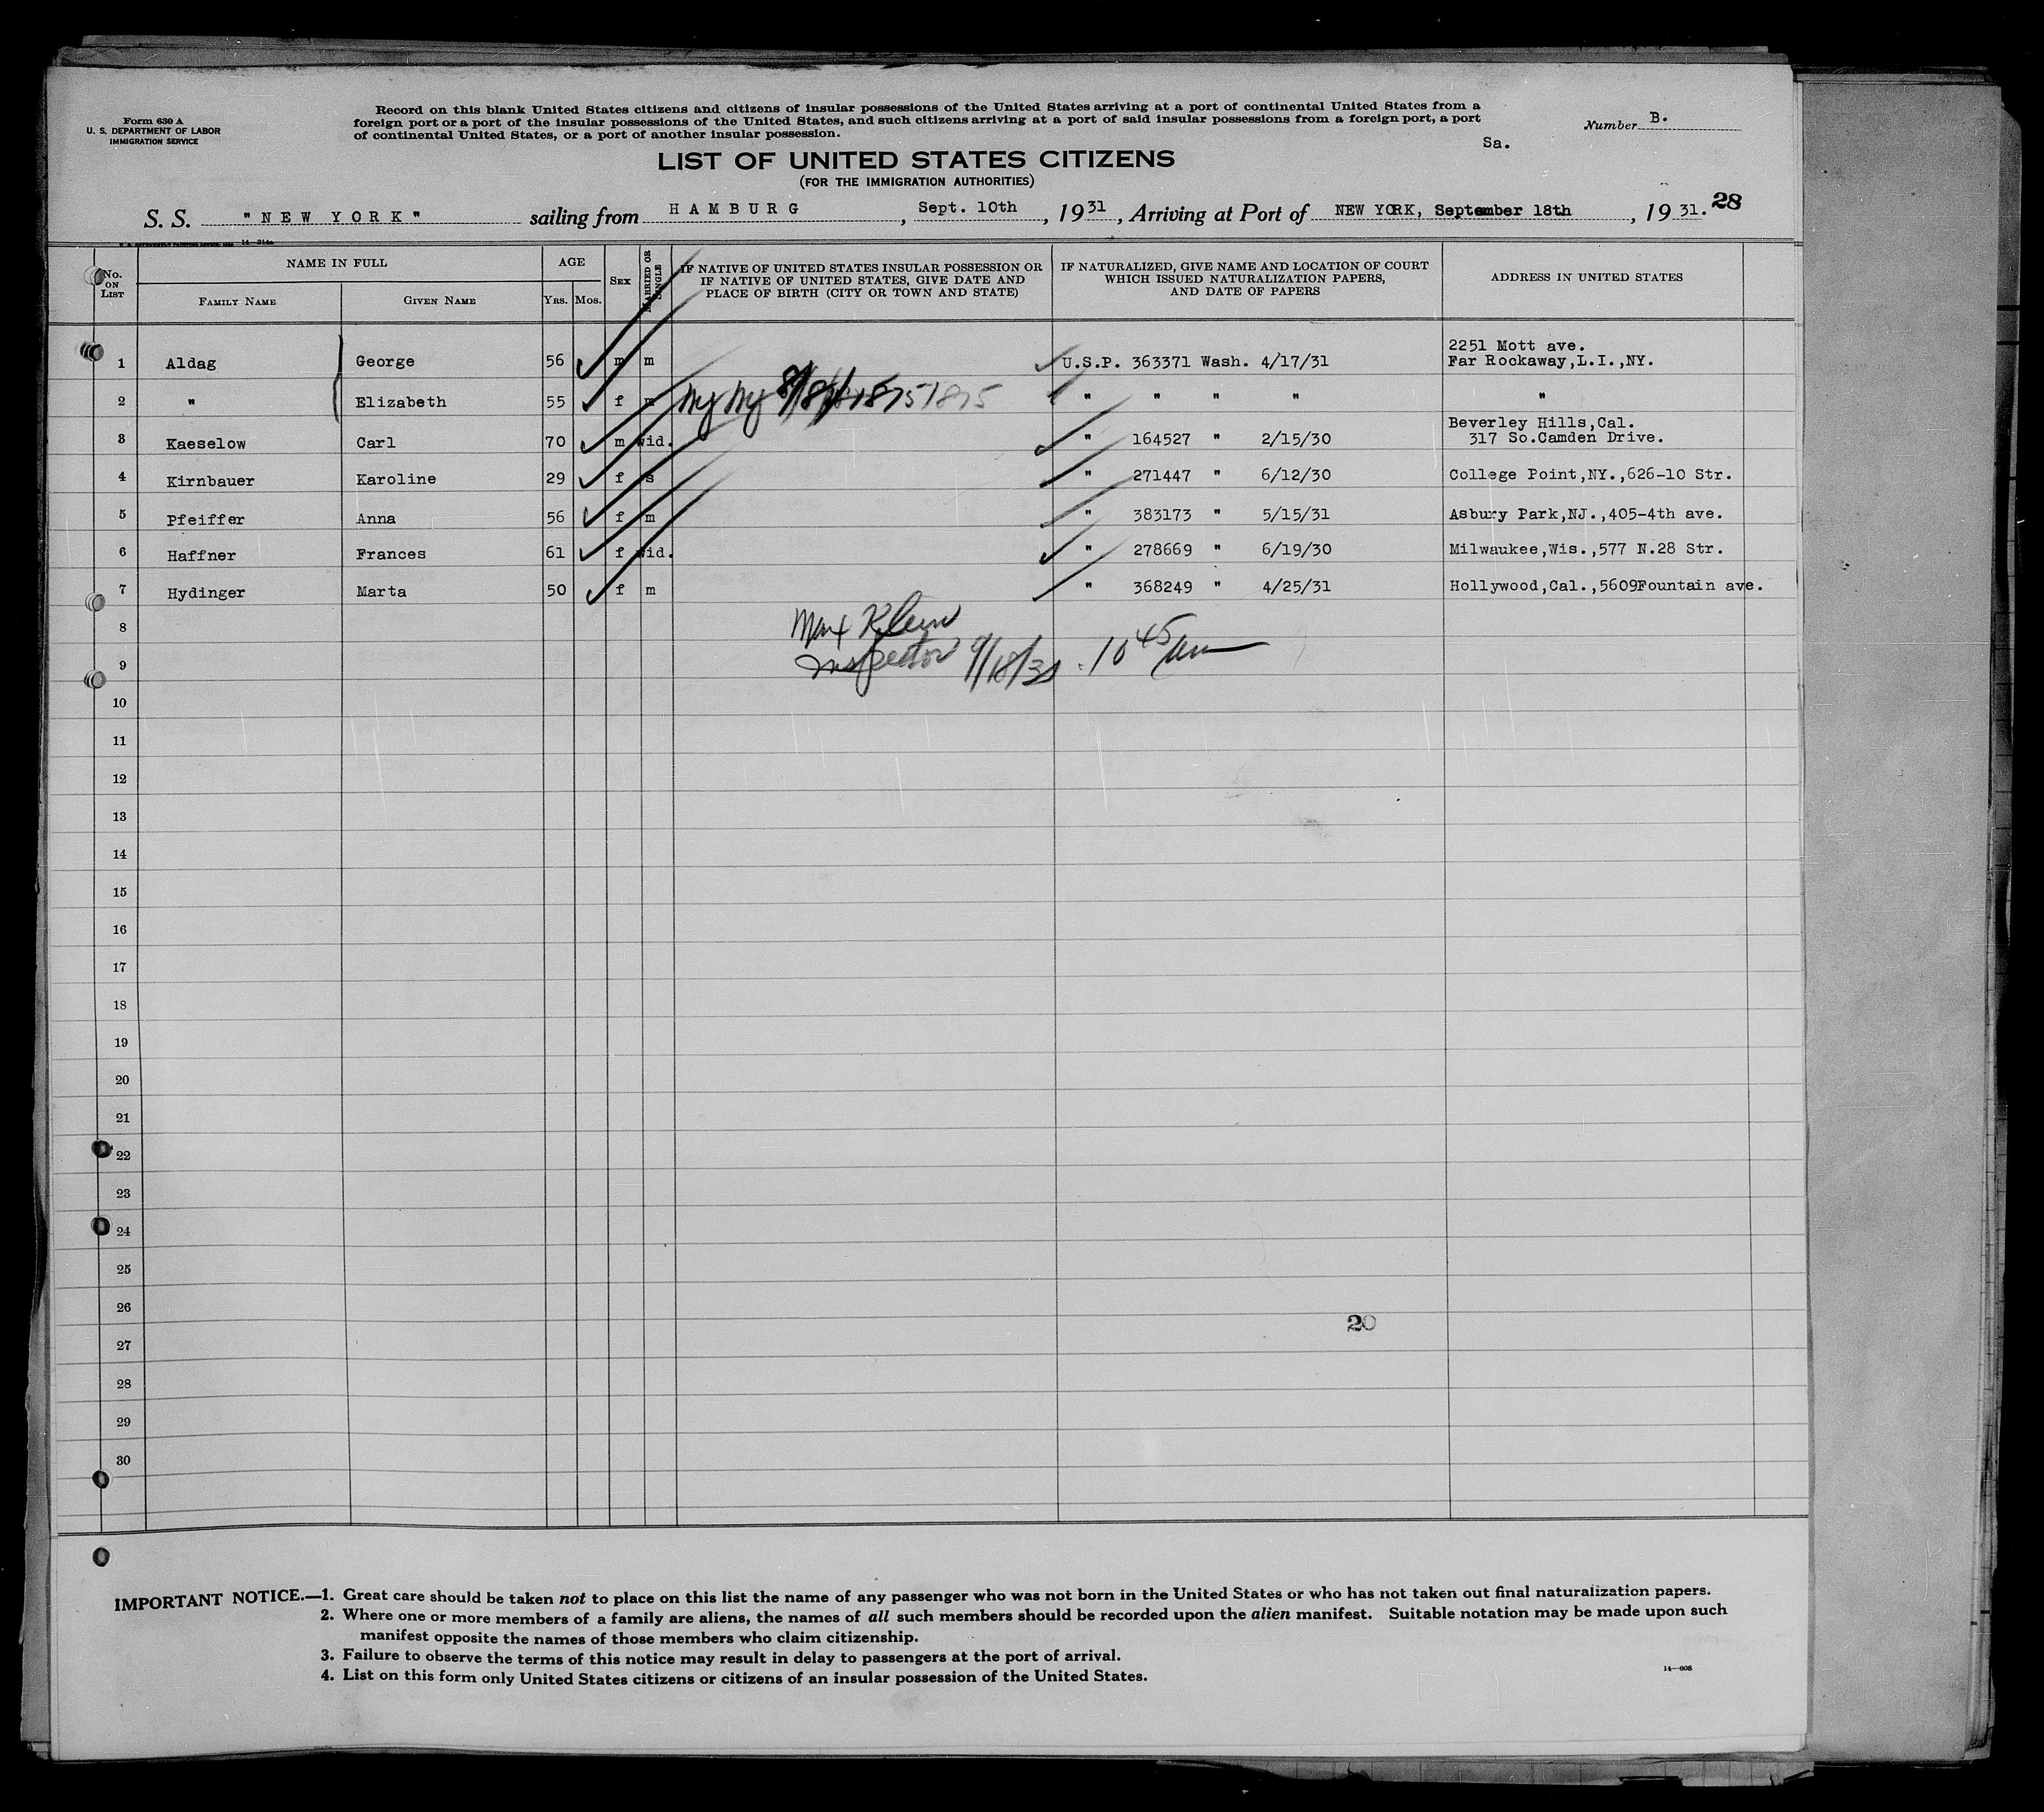 Form 630 A
U. S. DEPARTMENT OF LABOR
IMMIGRATION SERVICE
Record on this blank United States citizens and citizens of insular possessions of the United States arriving at a port of continental United States from a
foreign port or a port of the insular possessions of the United States, and such citizens arriving at a port of said insular possessions from a foreign port, a port
of continental United States, or a port of another insular possession.
Number B.
Sa.
LIST OF UNITED STATES CITIZENS
(FOR THE IMMIGRATION AUTHORITIES)
S. S. "NEW YORK" sailing from HAMBURG, Sept. 10th, 1931, Arriving at Port of NEW YORK, September 18th, 1931. 28
14—314a
No. ON LIST
NAME IN FULL
FAMILY NAME
GIVEN NAME
AGE
YRS.
MOS.
SEX
MARRIED OR SINGLE
IF NATIVE OF UNITED STATES INSULAR POSSESSION OR
IF NATIVE OF UNITED STATES, GIVE DATE AND
PLACE OF BIRTH (CITY OR TOWN AND STATE)
IF NATURALIZED, GIVE NAME AND LOCATION OF COURT
WHICH ISSUED NATURALIZATION PAPERS,
AND DATE OF PAPERS
ADDRESS IN UNITED STATES
2251 Mott ave.
1 Aldag George 56 m m U.S.P. 363371 Wash. 4/17/31 Far Rockaway,L.I.,NY.
2 " Elizabeth 55 f m NY NY 1875 1875 " " " " "
Beverley Hills,Cal.
3 Kaeselow Carl 70 m wid. " 164527 " 2/15/30 317 So.Camden Drive.
4 Kirnbauer Karoline 29 f s " 271447 " 6/12/30 College Point,NY.,626-10 Str.
5 Pfeiffer Anna 56 f m " 383173 " 5/15/31 Asbury Park,NJ.,405-4th ave.
6 Haffner Frances 61 f wid. " 278669 " 6/19/30 Milwaukee,Wis.,577 N.28 Str.
7 Hydinger Marta 50 f m " 368249 " 4/25/31 Hollywood,Cal.,5609Fountain ave.
8 Max Klein
9 Inspector 9/18/31 10 45 am
10
11
12
13
14
15
16
17
18
19
20
21
22
23
24
25
26
20
27
28
29
30
IMPORTANT NOTICE.—1. Great care should be taken not to place on this list the name of any passenger who was not born in the United States or who has not taken out final naturalization papers.
2. Where one or more members of a family are aliens, the names of all such members should be recorded upon the alien manifest. Suitable notation may be made upon such
manifest opposite the names of those members who claim citizenship.
3. Failure to observe the terms of this notice may result in delay to passengers at the port of arrival.
4. List on this form only United States citizens or citizens of an insular possession of the United States.
14—608